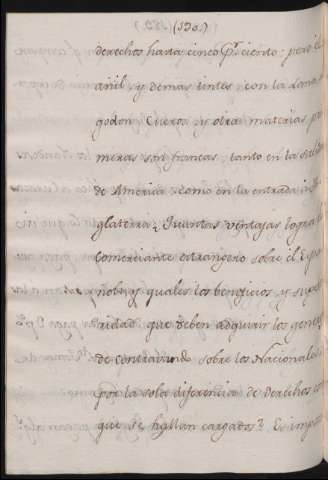 (130.)
derechos hasta cinco P.r ciento: pero el
añil, y demas tintes, con la Lana
godon, Cueros, y otras materias pri
meras son francas, tanto en la salida
de America, como en la entrada
glaterra. ¿Quantas ventajas logra
Comerciante extrangero sobre el
ñol? ¿y quales los beneficios, y supe
ridad que deben adquirir los gener
de contravando sobre los Nacionales
por la sola diferencia de derechos
que se hallan cargados? Es impo